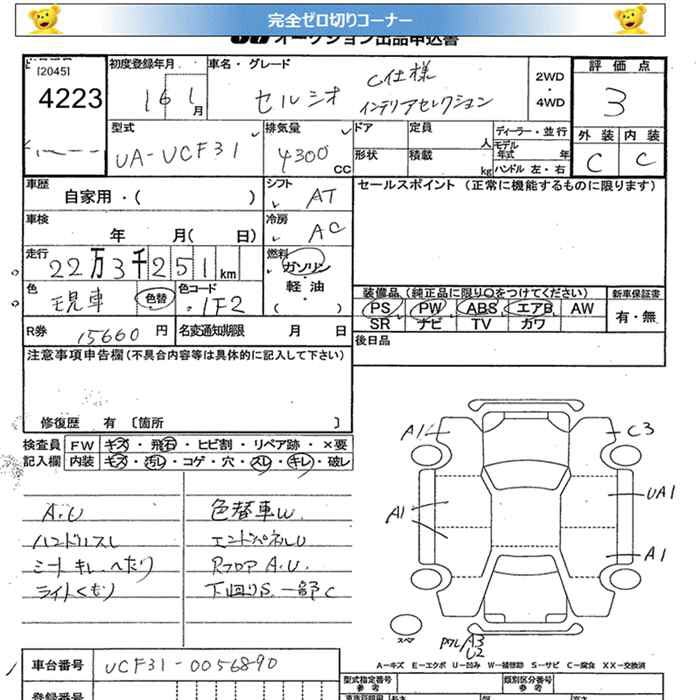 完全ゼロ切りコーナー
オークション出品申込書
[2045]
4223
初度登録年月
16 1 月
車名・グレード
セルシオ C仕様
インテリアセレクション
2WD
・
4WD
評価点
3
外装 内装
C C
型式
UA-UCF31
排気量
4300 CC
ドア
形状
定員 人
積載 kg
ディーラー・並行
モデル
年式 年
ハンドル 左・右
車歴
自家用・( )
シフト
AT
セールスポイント (正常に機能するものに限ります)
車検
年 月( 日)
冷房
AC
走行
22万3千251km
燃料
ガソリン
軽油
( )
色
現車
色替
色コード
1F2
装備品(純正品に限り○をつけてください)
新車保証書
PS PW ABS エアB AW
有・無
SR ナビ TV カワ
R券 15660 円
名変通知期限 月 日
後日品
注意事項申告欄(不具合内容等は具体的に記入して下さい)
修復歴 有 〔箇所 〕
検査員
記入欄
FW キズ・飛石・ヒビ割・リペア跡・×要
内装 キズ・汚レ・コゲ・穴・スレ・キレ・破レ
A.U
ハンドルスレ
シートキレ、へたり
ライトくもり
色替車W
エンドパネルU
RフロアA.U.
下回りS.一部C
A1
C3
A1
UA1
A1
スペア
A3
U2
A-キズ E-エクボ U-凹み W-補修跡 S-サビ C-腐食 XX-交換済
車台番号
UCF31-0056890
登録番号
型式指定番号
参考
類別区分番号
参考